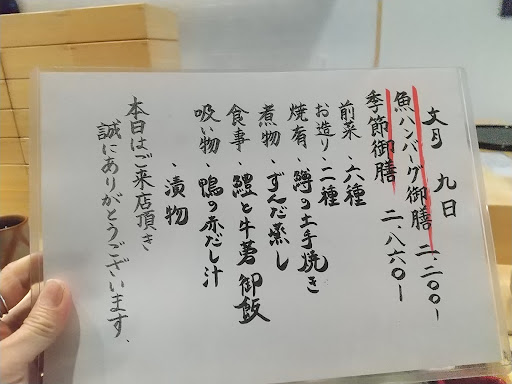 文月 九日
魚ハンバーグ御膳 二.二〇〇-
季節御膳 二.八六〇-
前菜、六種
お造り、二種
焼肴、鱒の土手焼き
煮物、ずんだ蒸し
食事、鱧と牛蒡御飯
吸い物、鴨の赤だし汁
、漬物
本日はご来店頂き
誠にありがとうございます、